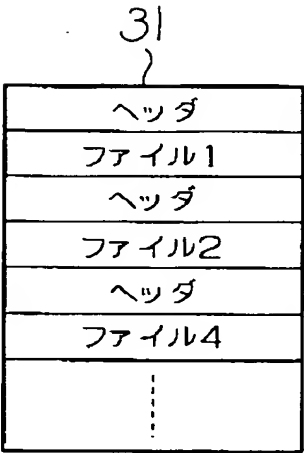 31
ヘッダ
ファイル1
ヘッダ
ファイル2
ヘッダ
ファイル4